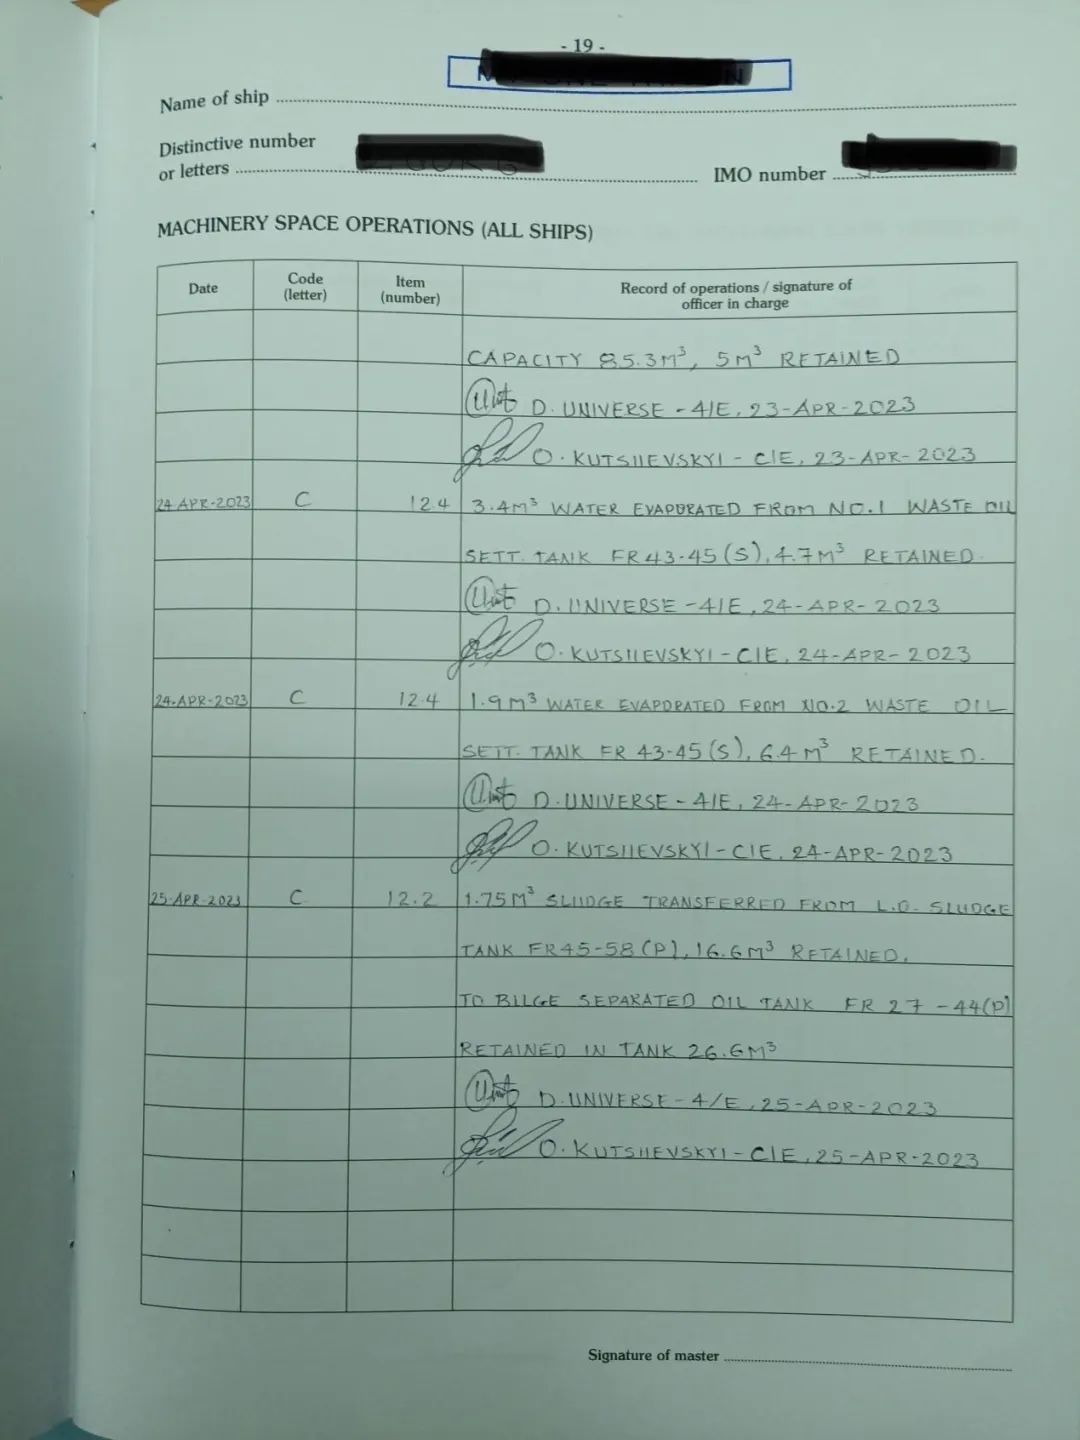 - 19 -
Name of ship
Distinctive number
or letters
IMO number
MACHINERY SPACE OPERATIONS (ALL SHIPS)
Date Code (letter) Item (number) Record of operations / signature of officer in charge
CAPACITY 85.3M³, 5M³ RETAINED
D. UNIVERSE - 4/E, 23-APR-2023
O. KUTSIIEVSKYI - C/E, 23-APR-2023
24 APR-2023 C 12.4 3.4M³ WATER EVAPORATED FROM NO.1 WASTE OIL
SETT. TANK FR43-45 (S), 4.7M³ RETAINED.
D. UNIVERSE - 4/E, 24-APR-2023
O. KUTSIIEVSKYI - C/E, 24-APR-2023
24-APR-2023 C 12.4 1.9M³ WATER EVAPORATED FROM NO.2 WASTE OIL
SETT. TANK FR 43-45 (S), 6.4 M³ RETAINED.
D. UNIVERSE - 4/E, 24-APR-2023
O. KUTSIIEVSKYI - C/E, 24-APR-2023
25-APR-2023 C 12.2 1.75M³ SLUDGE TRANSFERRED FROM L.O. SLUDGE
TANK FR45-58 (P), 16.6M³ RETAINED,
TO BILGE SEPARATED OIL TANK FR 27 - 44(P)
RETAINED IN TANK 26.6M³
D. UNIVERSE - 4/E, 25-APR-2023
O. KUTSIIEVSKYI - C/E, 25-APR-2023
Signature of master